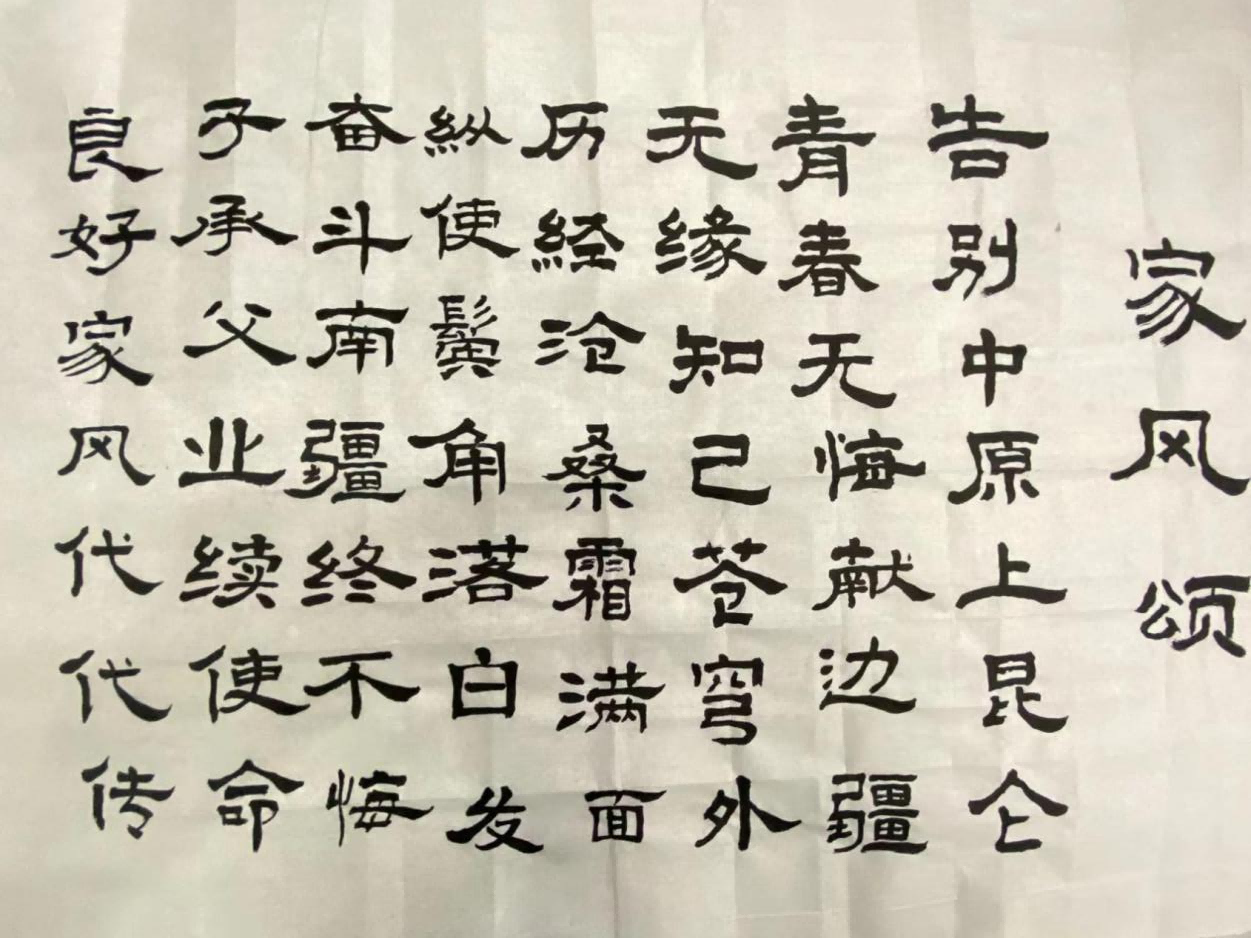 家风颂
告别中原上昆仑
青春无悔献边疆
无缘知己苍穹外
历经沧桑霜满面
纵使鬓角落白发
奋斗南疆终不悔
子承父业续使命
良好家风代代传